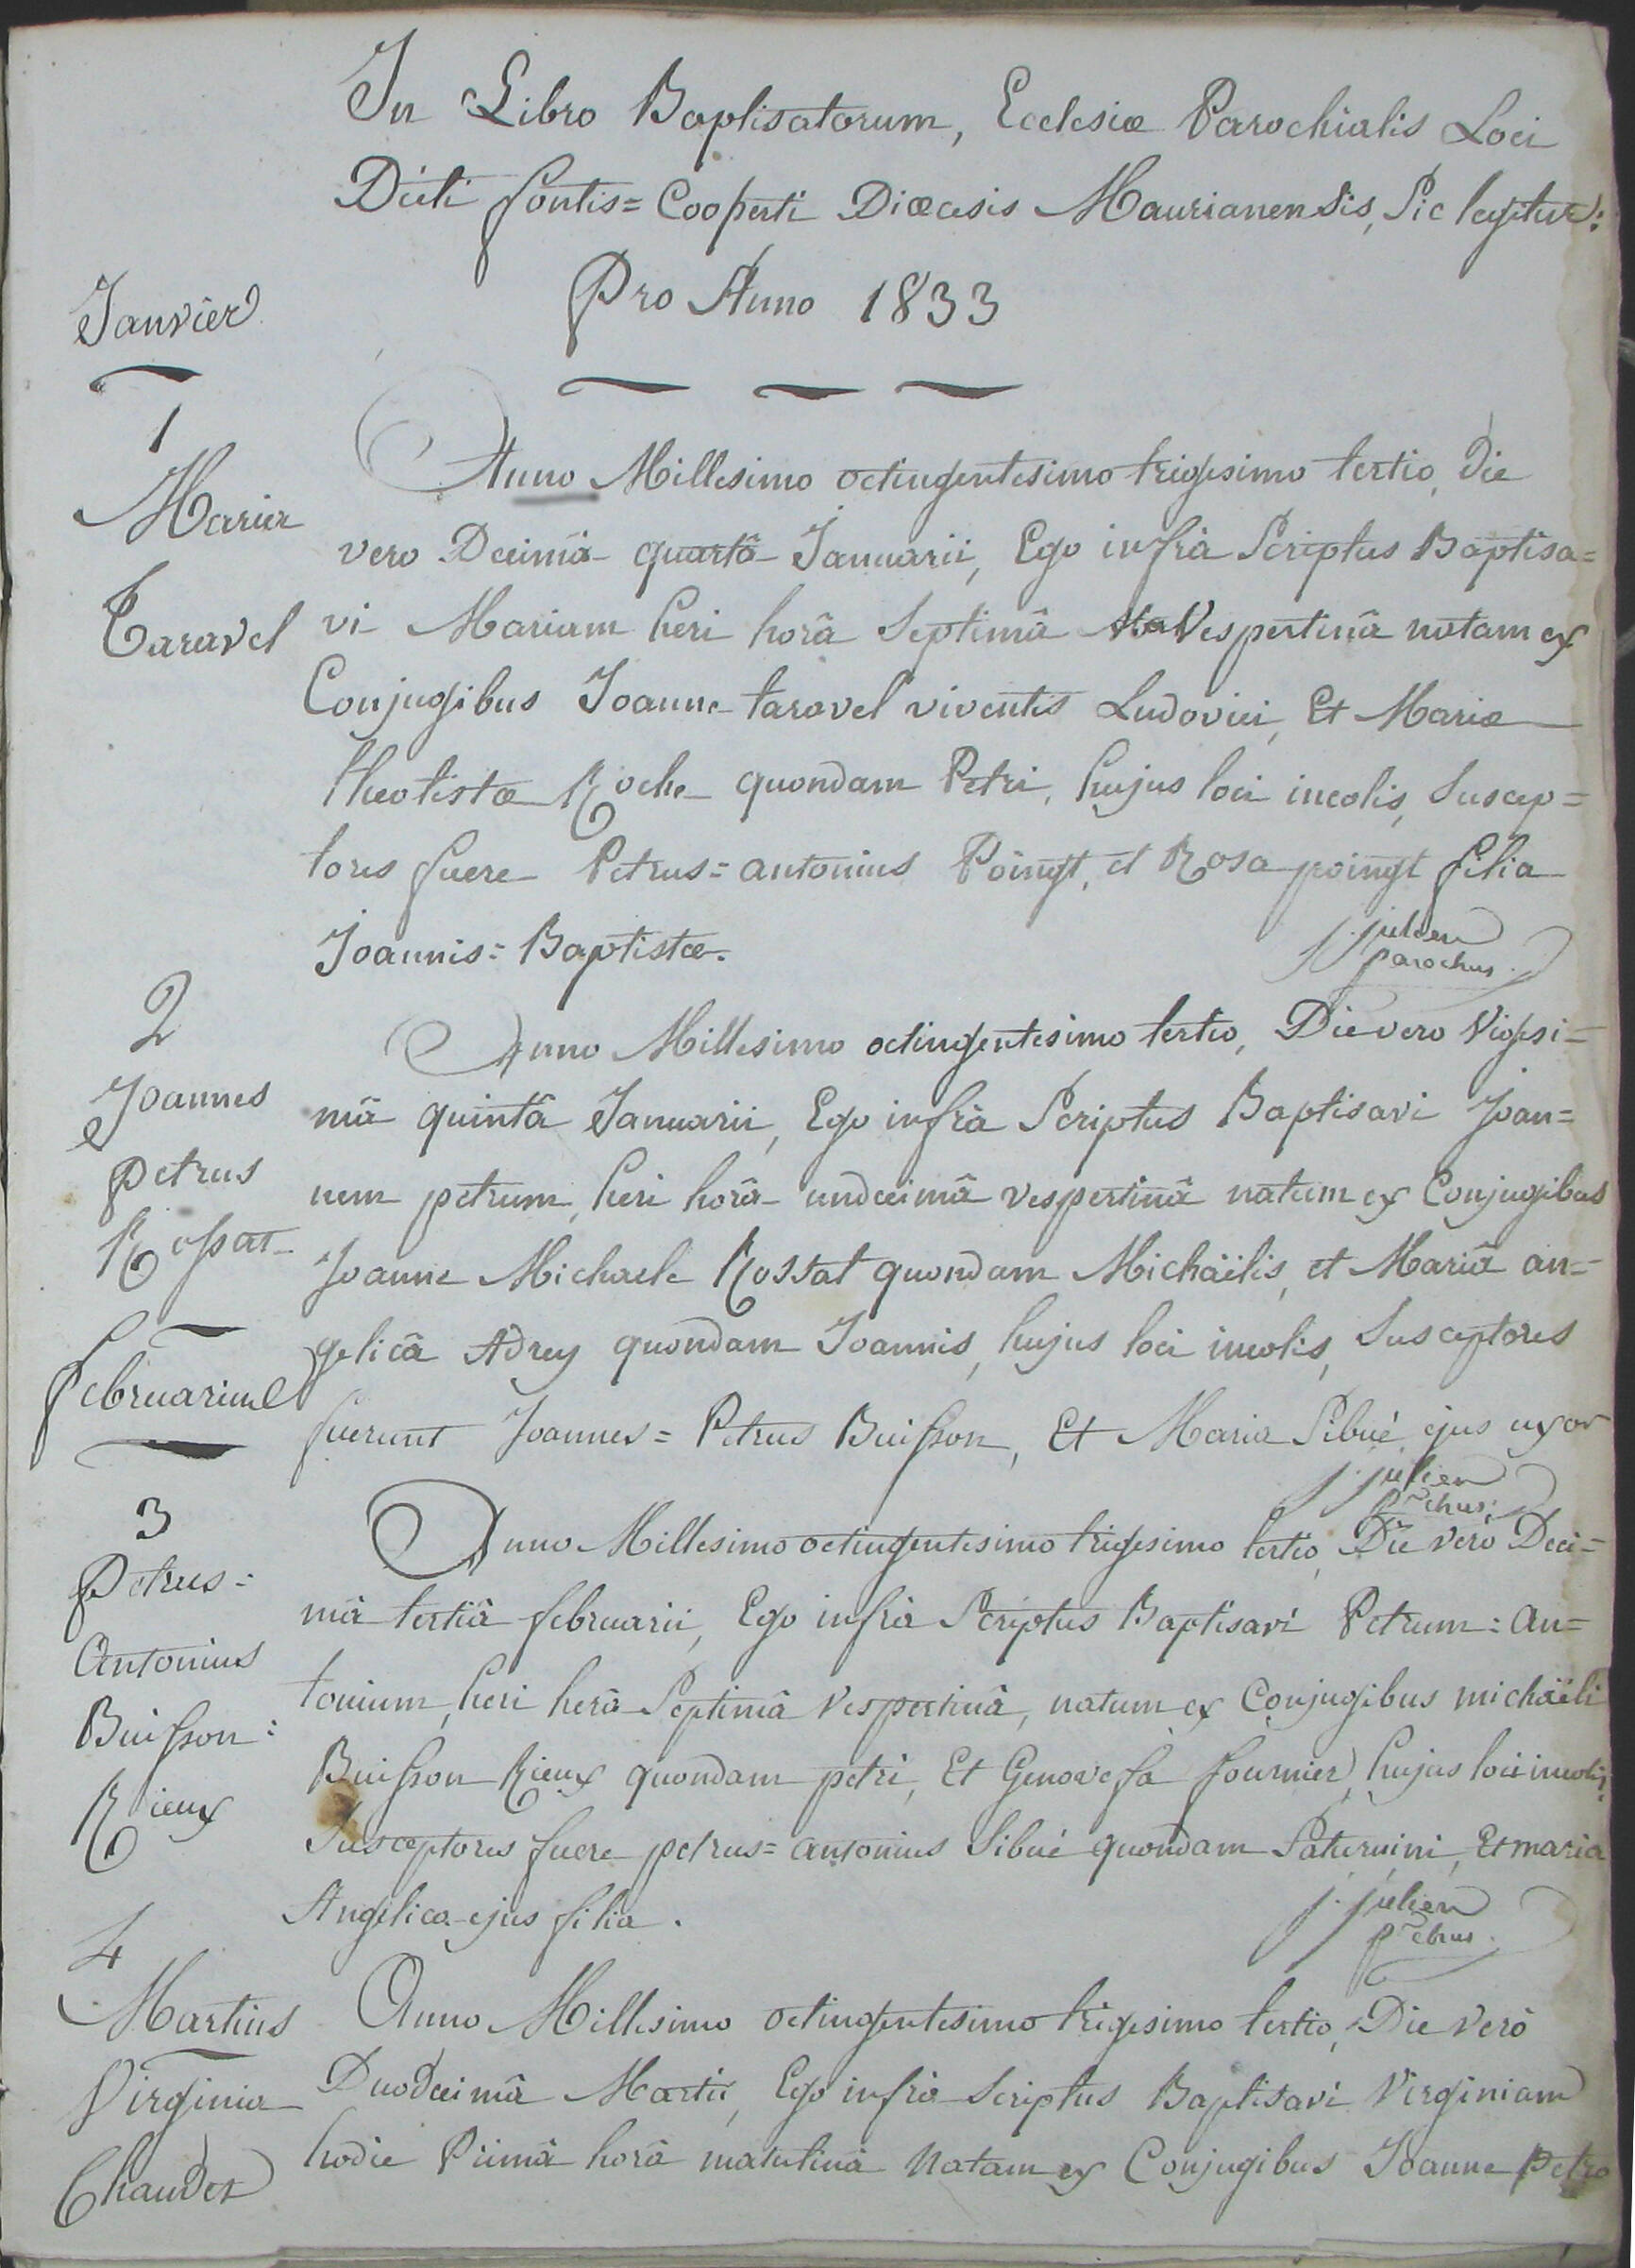 In Libro Baptisatorum, Ecclesiæ Parochialis Loci
Dicti fontis= Cooperti Diœcesis Maurianensis, Sic legitur:
Pro Anno 1833
Janvier
1
Maria
Taravel
Anno Millesimo octingentesimo trigesimo tertio, Die
vero Decimâ quartâ Januarii, Ego infrà Scriptus Baptisa=
vi Mariam heri horâ Septimâ Vespertinâ natam ex
Conjugibus Joanne taravel viventis Ludovici, Et Mariæ
theotistæ Roche quondam Petri, hujus loci incolis, Suscep=
tores fuere Petrus= antonius Poingt, et Rosa poingt filia
Joannis= Baptistæ.
j. julien
parochus.
2
Joannes
petrus
Rossat
Anno Millesimo octingentesimo tertio, Die vero Vigesi=
mâ quintâ Januarii, Ego infrà Scriptus Baptisavi Joan=
nem petrum, heri horâ undecimâ vespertinâ natum ex Conjugibus
Joanne Michaele Rossat quondam Michäelis, et Mariâ an=
gelicâ Adrey quondam Joannis, hujus loci incolis, Susceptores
fuerunt Joannes= Petrus Buisson, Et Maria Sibué ejus uxor
j. julien
p~chus.
februarius
3
Petrus=
Antonius
Buisson=
Rieux
Anno Millesimo octingentesimo trigesimo tertio, Die verò Deci=
mâ tertiâ februarii, Ego infrà Scriptus Baptisavi Petrum= an=
tonium, heri horâ Septimâ Vespertinâ, natum ex Conjugibus michäeli
Buisson Rieux quondam petri, Et Genovefa fournier, hujus loci incolis,
Susceptores fuere petrus= antonius Sibué quondam Saturnini, Et maria
Angelica ejus filia.
j. julien
p~chus.
4
Martius
Virginia
Chaudet
Anno Millesimo octingentesimo trigesimo tertio, Die verò
Duodecimâ Martii, Ego infrà Scriptus Baptisavi Virginiam
hodie Primâ horâ matutinâ natam ex Conjugibus Joanne Petro